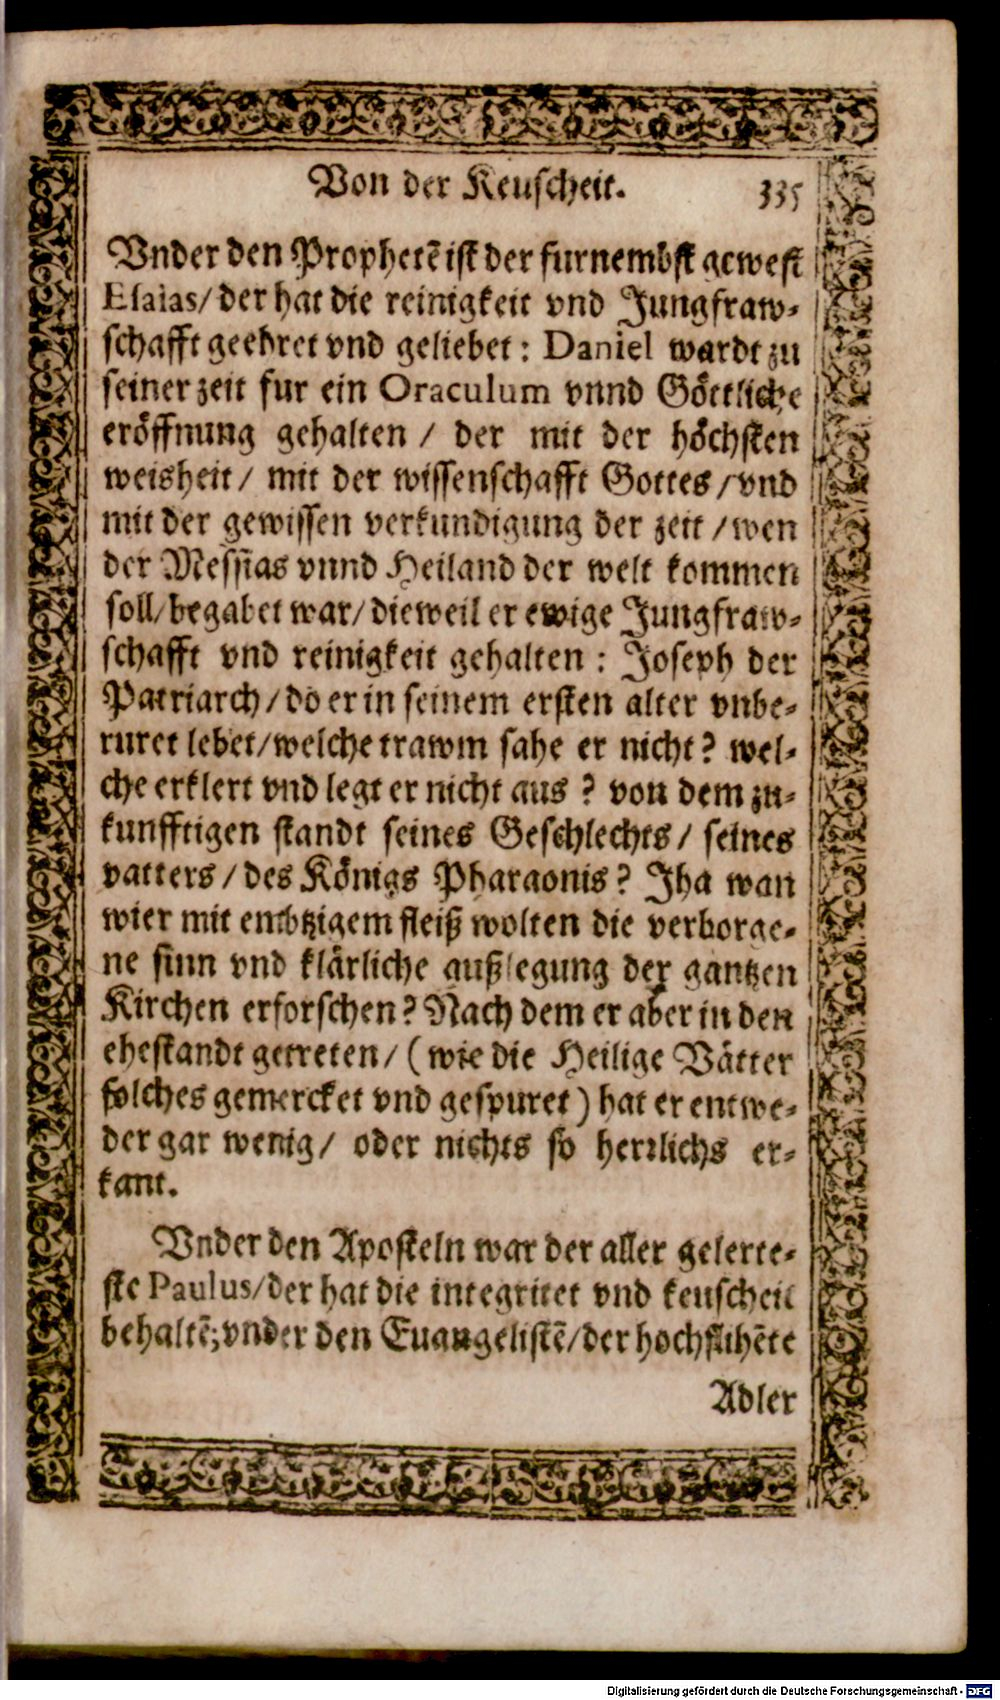 Von der Keuscheit.
335
Vnder den Prophetẽ ist der furnembst gewest
Esaias/ der hat die reinigkeit vnd Jungfraw-
schafft geehret vnd geliebet: Daniel wardt zu
seiner zeit fur ein Oraculum vnnd Göttliche
eröffnung gehalten / der mit der höchsten
weisheit/ mit der wissenschafft Gottes/vnd
mit der gewissen verkundigung der zeit /wen
der Messias vnnd Heiland der welt kommen
soll/begabet war/dieweil er ewige Jungfraw-
schafft vnd reinigkeit gehalten: Joseph der
Patriarch/do er in seinem ersten alter vnbe-
ruret lebet/welche trawm sahe er nicht? wel-
che erklert vnd legt er nicht aus? von dem zu-
kunfftigen standt seines Geschlechts/ seines
vatters/des Königs Pharaonis? Jha wan
wier mit embtzigem fleiß wolten die verborge-
ne sinn vnd klärliche außlegung der gantzen
Kirchen erforschen? Nach dem er aber in den
ehestandt getreten/(wie die Heilige Vätter
solches gemercket vnd gespuret) hat er entwe-
der gar wenig/ oder nichts so herrlichs er-
kant.
Vnder den Aposteln war der aller gelerte-
ste Paulus/der hat die integritet vnd keuscheit
behaltẽ; vnder den Euangelistẽ/der hochflihẽte
Adler
Digitalisierung gefördert durch die Deutsche Forschungsgemeinschaft - DFG